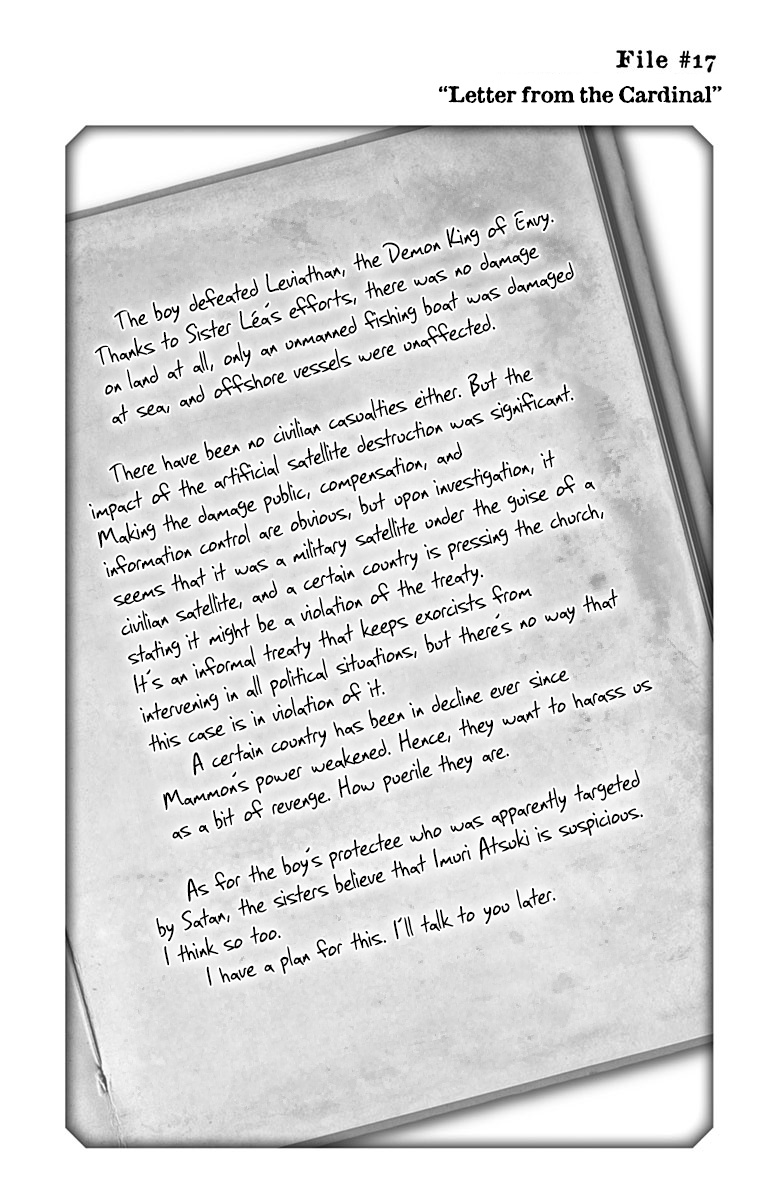 File #17
“Letter from the Cardinal”
The boy defeated Leviathan, the Demon King of Envy.
Thanks to Sister Léa's efforts, there was no damage
on land at all, only an unmanned fishing boat was damaged
at sea, and offshore vessels were unaffected.
There have been no civilian casualties either. But the
impact of the artificial satellite destruction was significant.
Making the damage public, compensation, and
information control are obvious, but upon investigation, it
seems that it was a military satellite under the guise of a
civilian satellite, and a certain country is pressing the church,
stating it might be a violation of the treaty.
It's an informal treaty that keeps exorcists from
intervening in all political situations, but there's no way that
this case is in violation of it.
A certain country has been in decline ever since
Mammon's power weakened. Hence, they want to harass us
as a bit of revenge. How puerile they are.
As for the boy's protectee who was apparently targeted
by Satan, the sisters believe that Imuri Atsuki is suspicious.
I think so too.
I have a plan for this. I'll talk to you later.